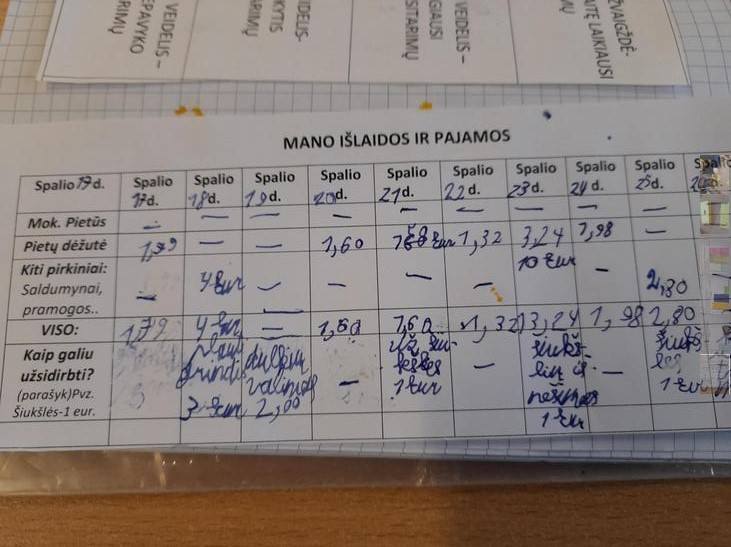 VEIDELIS –
EPAVYKO
RIMŲ
IDELIS-
KYTIS
ARIMŲ
VEIDELIS –
GIAUSI
SITARIMŲ
ŽVAIGŽDĖ-
AITĘ LAIKIAUSI
MŲ
MANO IŠLAIDOS IR PAJAMOS
Spalio d. Spalio 17d. Spalio 18d. Spalio 19d. Spalio 20d. Spalio 21d. Spalio 22d. Spalio 23d. Spalio 24d. Spalio 25d. Spalio
Mok. Pietūs — — — — — — — — —
Pietų dėžutė 1,79 — — 1,60 1,32 3,24 1,98 —
Kiti pirkiniai: Saldumynai, pramogos.. — 4 Eur — — — — 10 Eur — 2,80
VISO: 1,79 4 Eur — 1,60 1,60 1,32 13,24 1,98 2,80
Kaip galiu
užsidirbti?
(parašyk)Pvz.
Šiukšlės-1 eur.
3 Eur
2,00
—
1 Eur
—
šiukš-
nešimas
1 Eur
—
šiukš
les
1 Eur